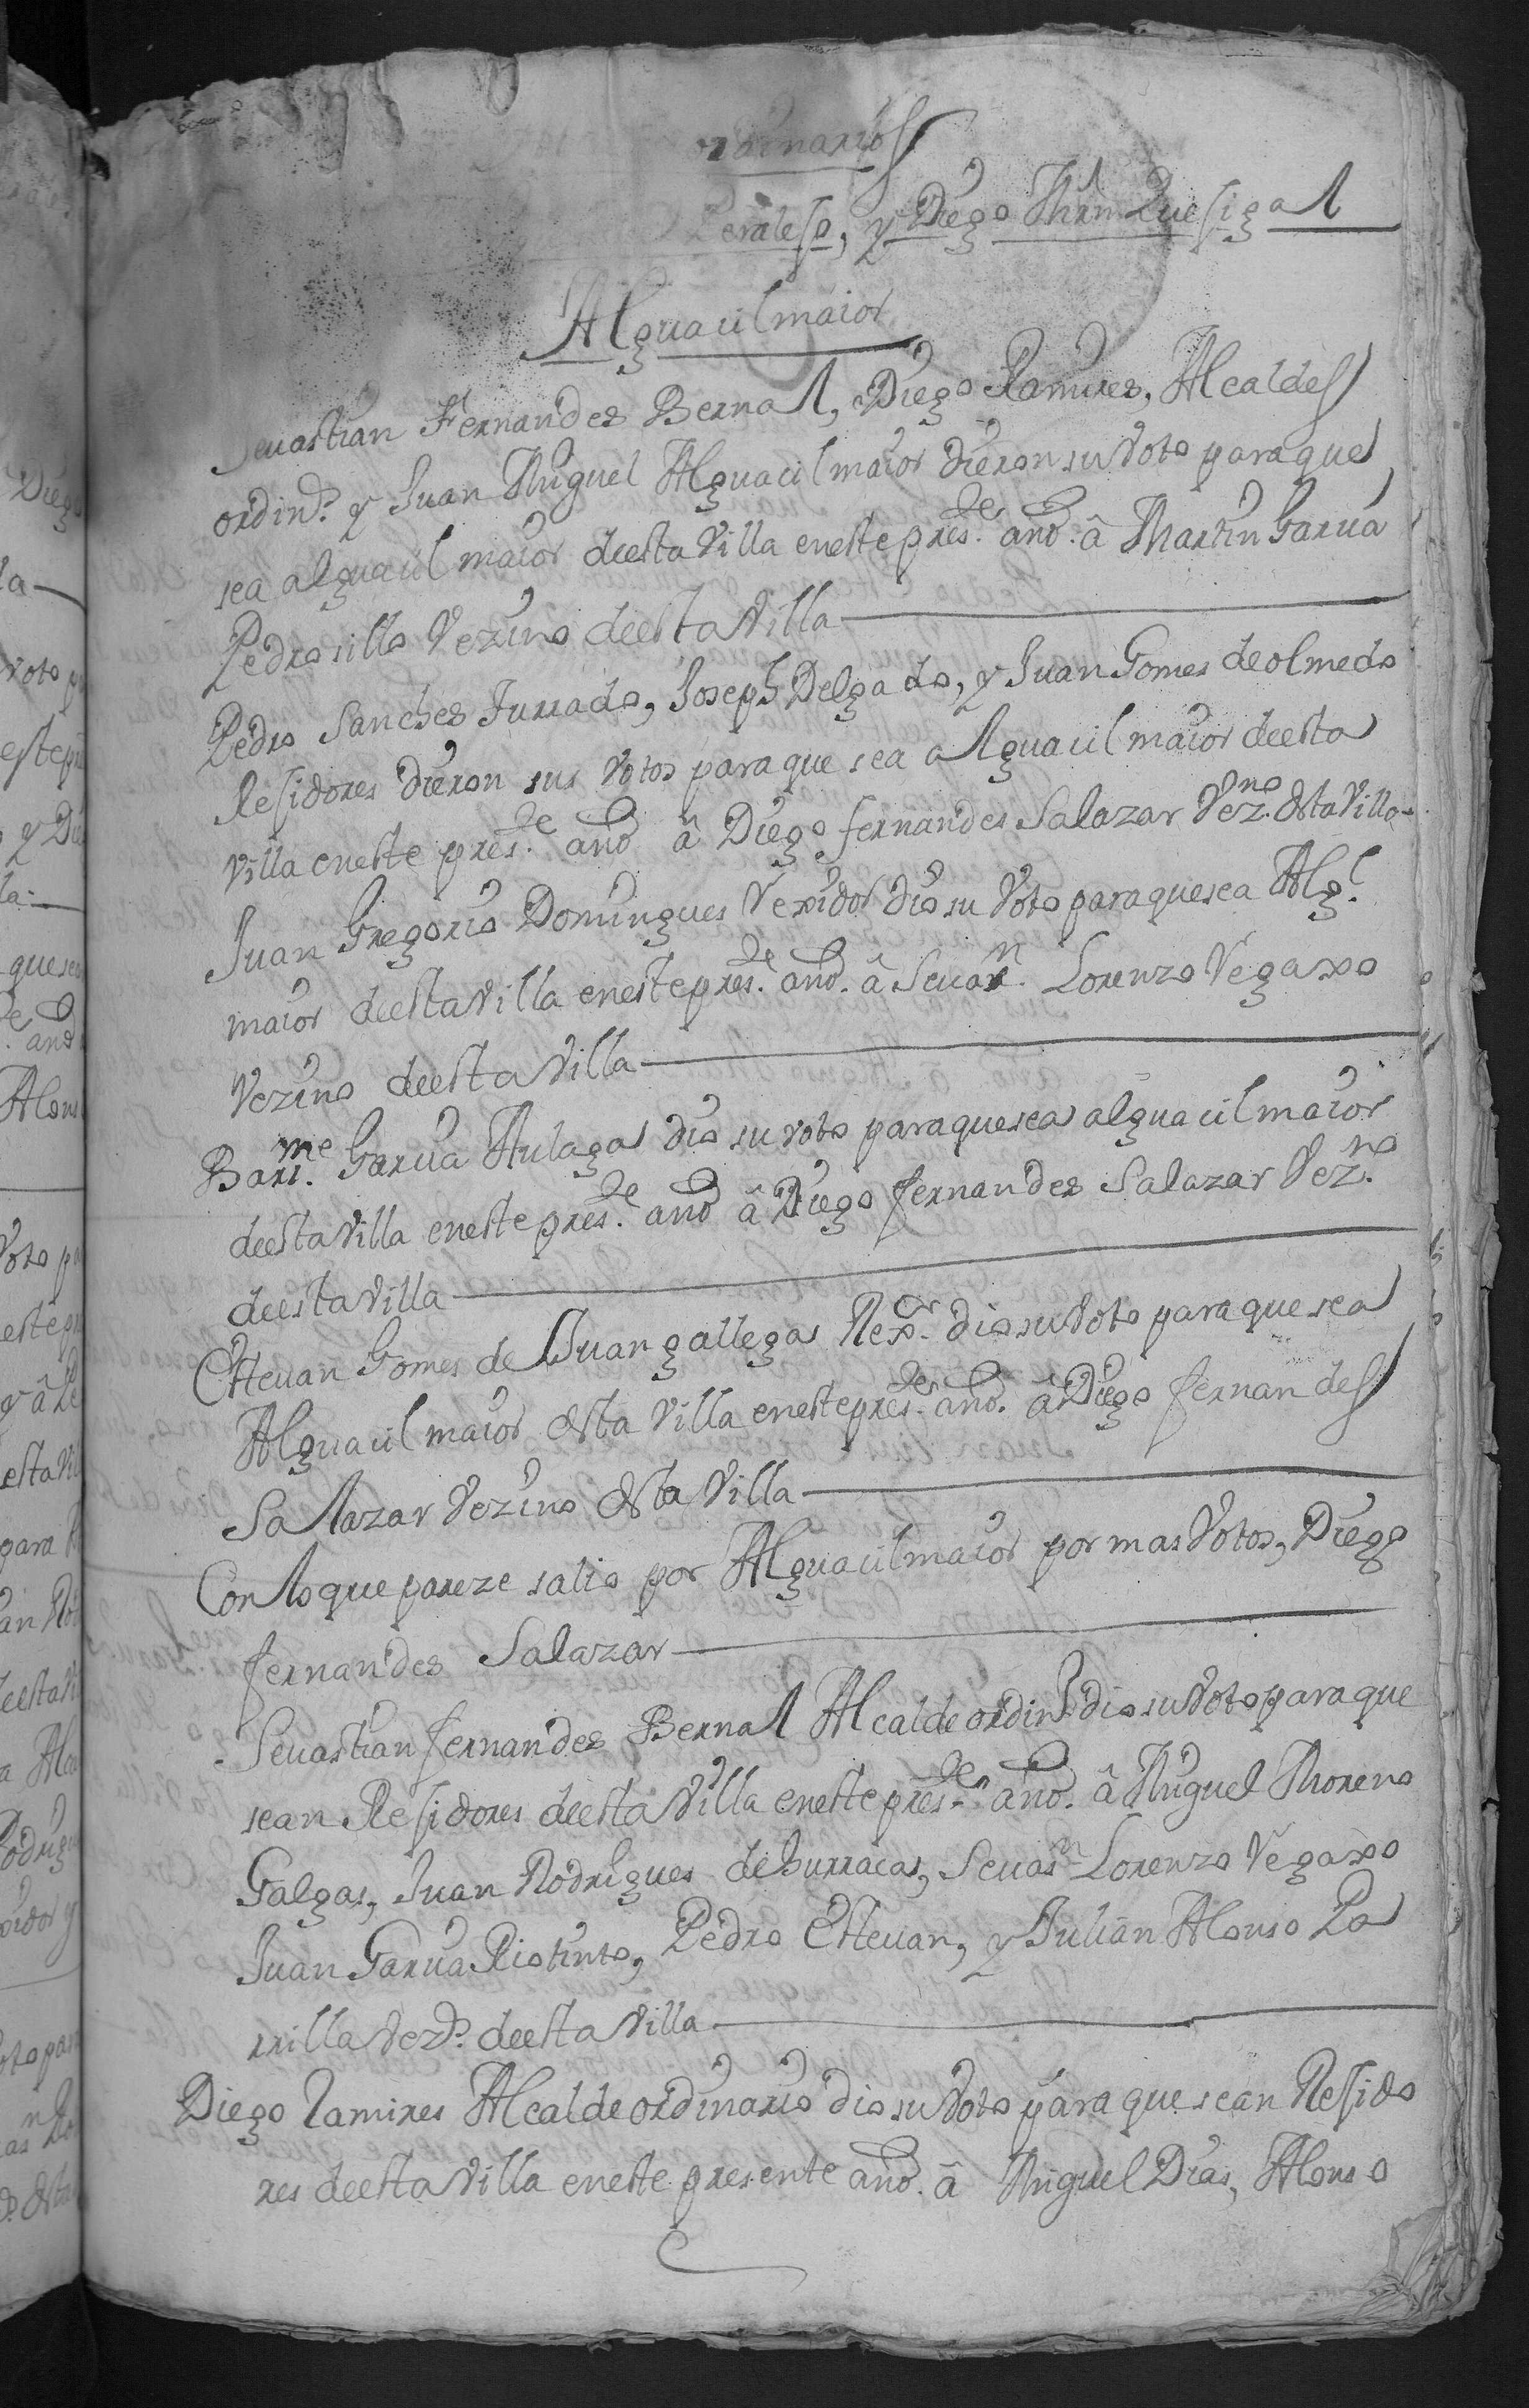 ordinarios
Peraleso, y Diego Mrn Quesigal
Alguacil maior
Seuastian Fernandes Bernal, Diego Ramires, Alcaldes
ordin.s y Juan Miguel Alguacil maior dieron su Voto para que
sea alguacil maior deesta Villa eneste pres.te año. â Martin Garcia
Pedrosillo Vezino deesta Villa
Pedro Sanches Jurrado, Joseph Delgado, y Juan Gomes de olmedo
Residores dieron sus Votos para que sea alguacil maior deesta
Villa eneste pres.te año â Diego fernandes Salazar Vez.no desta Villa
Juan Gregorio Domingues Rexidor dio su Voto para que sea Alg.l
maior deesta Villa eneste pres.te año. â Seuas.n Lorenzo Vegaxo
Vezino deesta Villa
Bart.me Garcia Aulagas dio su voto para que sea alguacil maior
deesta Villa eneste pres.te año â Diego fernandes Salazar Vez.no
deesta Villa
Esteuan Gomes de Juan gallegas Rex.or dio su Voto para que sea
Alguacil maior desta Villa eneste pres.te año. â Diego fernandes
Salazar Vezino desta Villa
Con lo que pareze salio por Alguacil maior por mas Votos, Diego
fernandes Salazar
Seuastian fernandes Bernal Alcalde ordin.o dio su Voto para que
sean Residores deesta Villa eneste pres.te año. â Miguel Moreno
Galgas, Juan Rodrigues de burracas, Seuas.n Lorenzo Vegaxo
Juan Garcia Riotinto, Pedro Esteuan, y Julian Alonso Pa
rrilla vez.s deesta Villa
Diego Ramires Alcalde ordinario dio su Voto para que sean Resido
res deesta Villa eneste presente año. â Miguel Dias, Alonso